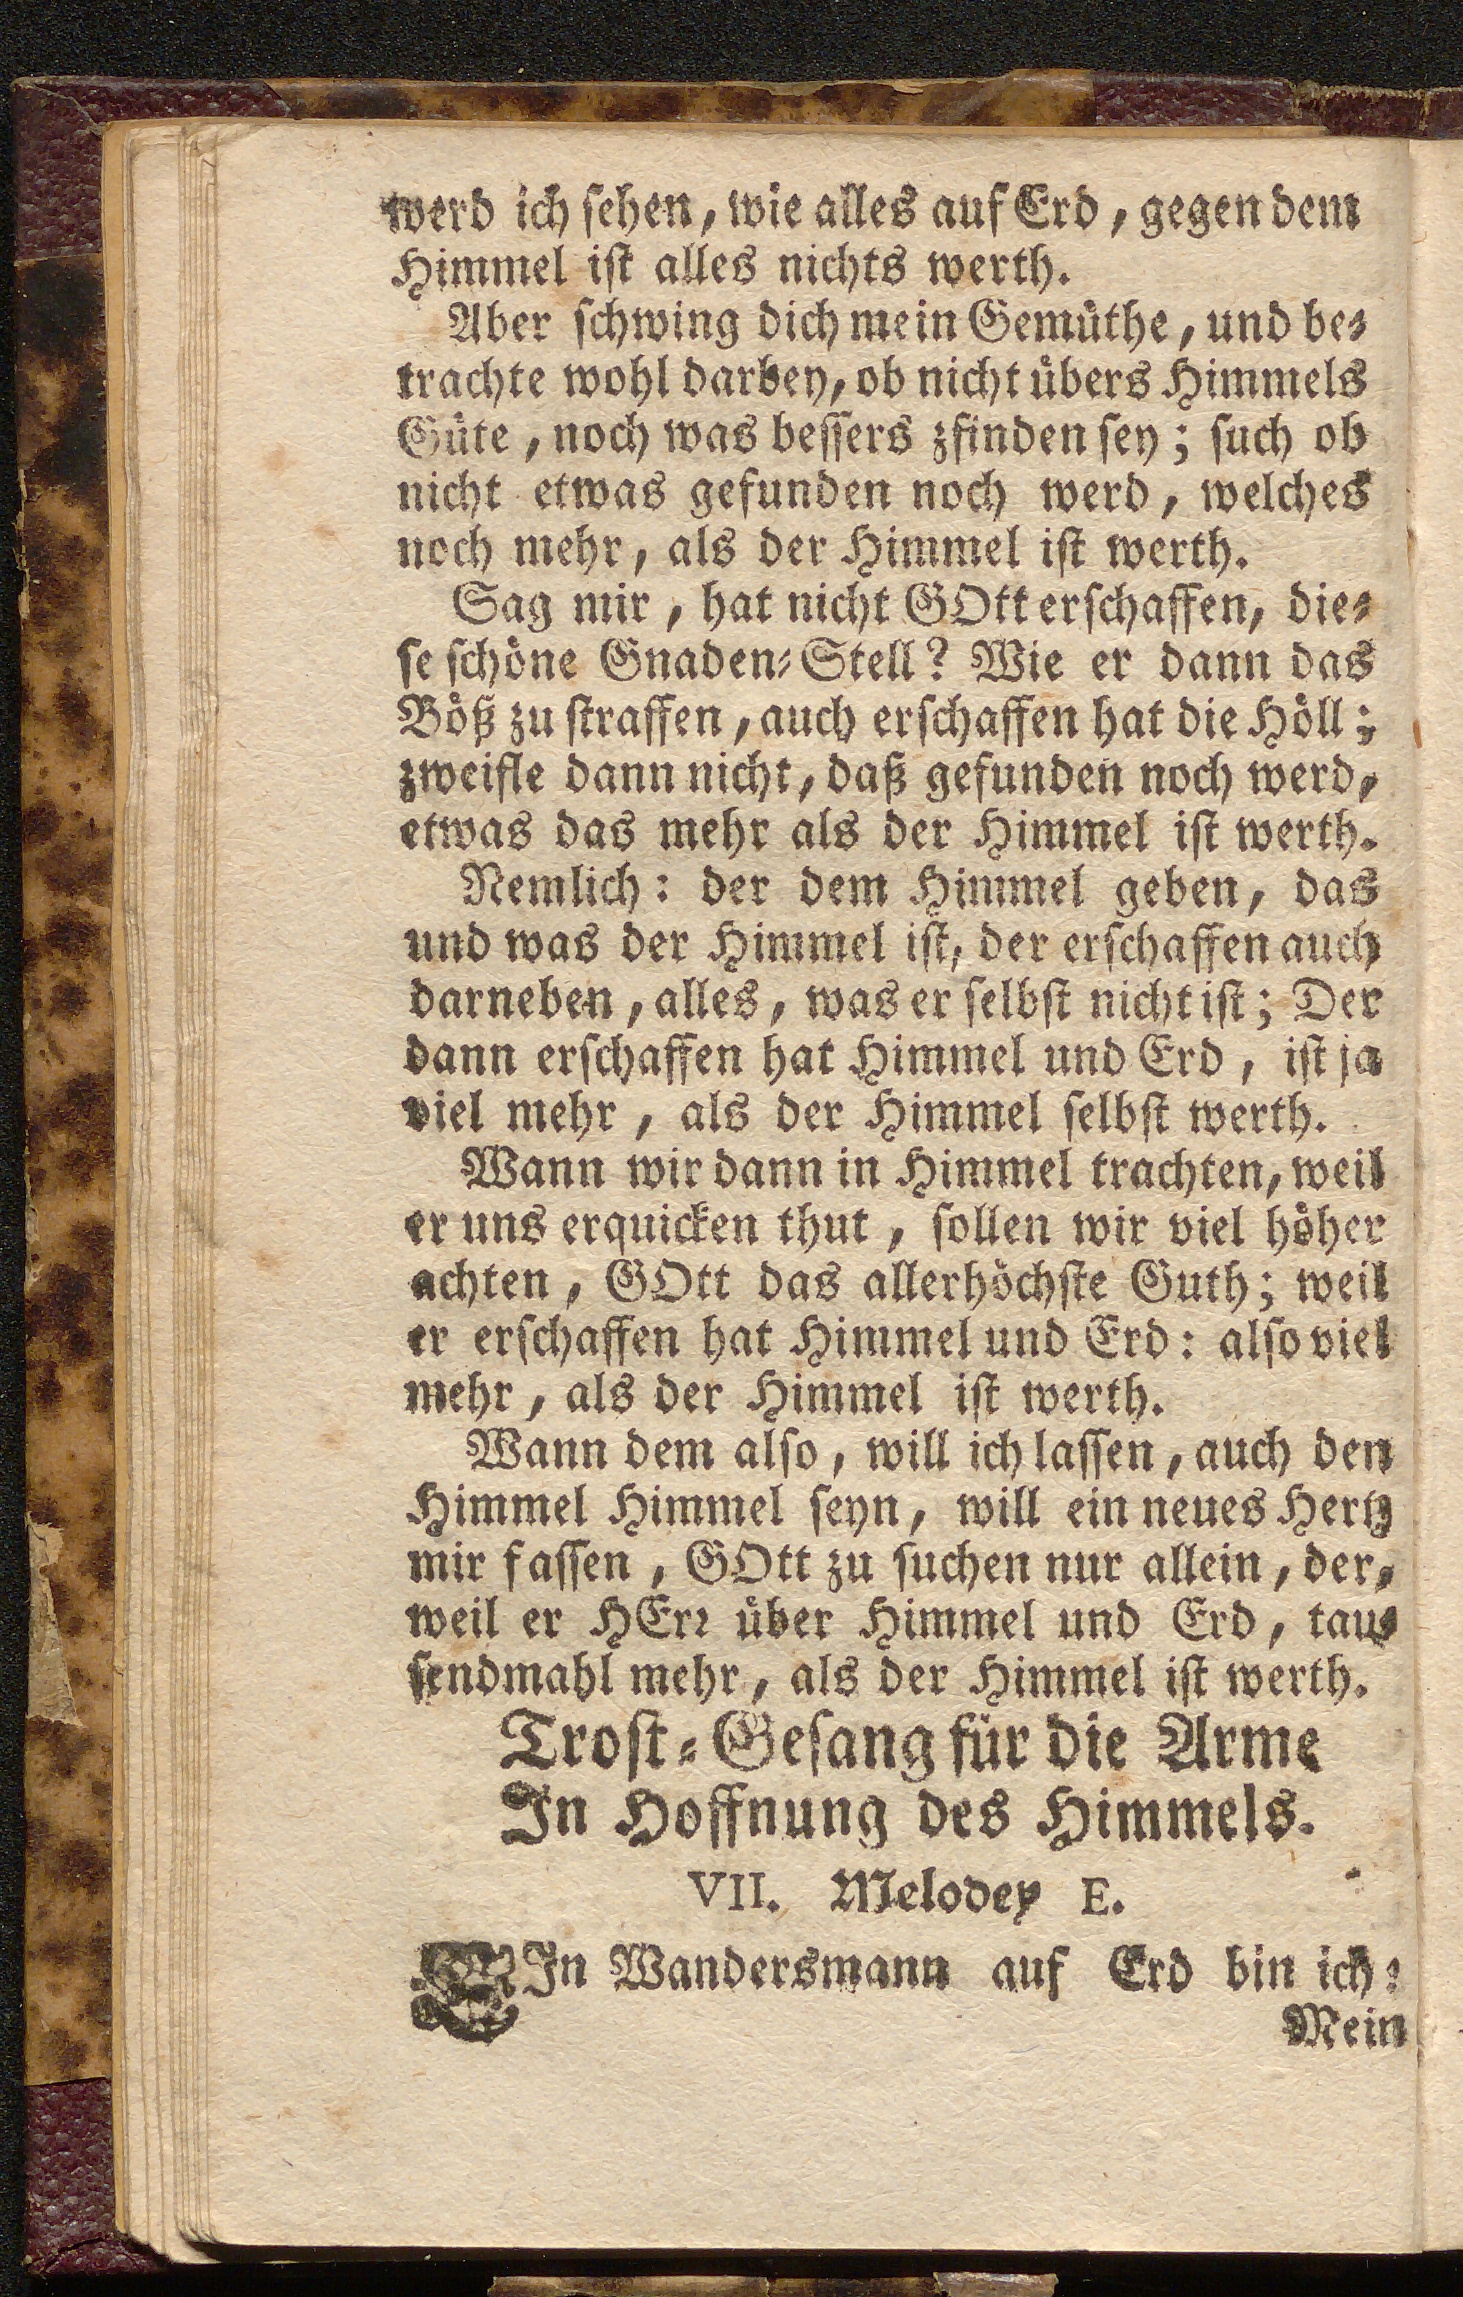 werd ich sehen, wie alles auf Erd, gegen dem
Himmel ist alles nichts werth.
Aber schwing dich mein Gemüthe, und be-
trachte wohl darbey, ob nicht übers Himmels
Güte, noch was bessers zfinden sey; such ob
nicht etwas gefunden noch werd, welches
noch mehr, als der Himmel ist werth.
Sag mir, hat nicht GOtt erschaffen, die-
se schöne Gnaden-Stell? Wie er dann das
Böß zu straffen, auch erschaffen hat die Höll;
zweifle dann nicht, daß gefunden noch werd,
etwas das mehr als der Himmel ist werth.
Nemlich: der dem Himmel geben, das
und was der Himmel ist, der erschaffen auch
darneben, alles, was er selbst nicht ist; Der
dann erschaffen hat Himmel und Erd, ist ja
viel mehr, als der Himmel selbst werth.
Wann wir dann in Himmel trachten, weil
er uns erquicken thut, sollen wir viel höher
achten, GOtt das allerhöchste Guth; weil
er erschaffen hat Himmel und Erd: also viel
mehr, als der Himmel ist werth.
Wann dem also, will ich lassen, auch den
Himmel Himmel seyn, will ein neues Hertz
mir fassen, GOtt zu suchen nur allein, der-
weil er HErr über Himmel und Erd, tau-
sendmahl mehr, als der Himmel ist werth.
Trost-Gesang für die Arme
In Hoffnung des Himmels.
VII. Melodey E.
EIn Wandersmann auf Erd bin ich:
Mein